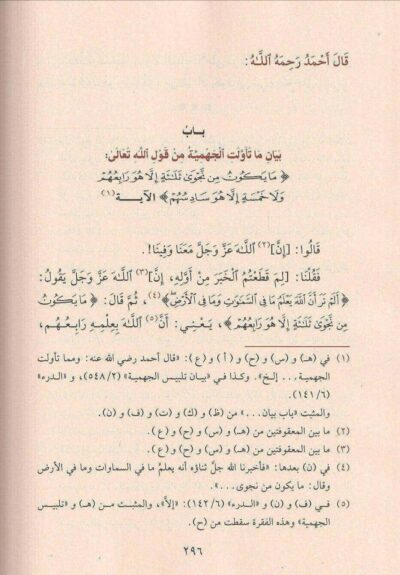 قَالَ أَحْمَدُ رَحِمَهُ ٱللَّهُ:
بَابُ
بَيَانِ مَا تَأَوَّلَت ٱلْجَهْمِيَّةُ مِنْ قَوْلِ ٱللَّهِ تَعَالَىٰ:
﴿ مَا يَكُونُ مِن نَّجْوَىٰ ثَلَٰثَةٍ إِلَّا هُوَ رَابِعُهُمْ
وَلَا خَمْسَةٍ إِلَّا هُوَ سَادِسُهُمْ ﴾ الآية (١)
قَالُوا: [إِنَّ](٢) ٱللَّهَ عَزَّ وَجَلَّ مَعَنَا وَفِينَا!.
فَقُلْنَا: [لِمَ قَطَعْتُمُ ٱلْخَبَرَ مِنْ أَوَّلِهِ، إِنَّ](٣) ٱللَّهَ عَزَّ وَجَلَّ يَقُولُ:
﴿ أَلَمْ تَرَ أَنَّ ٱللَّهَ يَعْلَمُ مَا فِي ٱلسَّمَٰوَٰتِ وَمَا فِي ٱلْأَرْضِ ﴾(٤)، ثُمَّ قَالَ: ﴿ مَا يَكُونُ
مِن نَّجْوَىٰ ثَلَٰثَةٍ إِلَّا هُوَ رَابِعُهُمْ ﴾، يَعْنِي: أَنَّ(٥) ٱللَّهَ بِعِلْمِهِ رَابِعُهُمْ،
(١) في (هـ) و (س) و (ح) و (أ) و (ع): «قال أحمد رضي الله عنه: ومما تأولت
الجهمية... إلخ». وكذا في «بيان تلبيس الجهمية» (٥٤٨/٢)، و «الدرء»
(١٤١/٦).
والمثبت «باب بيان...» من (ظ) و (ك) و (ت) و (ف) و (ن).
(٢) ما بين المعقوفتين من (هـ) و (س) و (ح) و (ع).
(٣) ما بين المعقوفتين من (هـ) و (س) و (ح) و (ع).
(٤) في (ن) بعدها: «فأخبرنا الله جلّ ثناؤه أنه يعلمُ ما في السماوات وما في الأرض
وقال: ما يكون من نجوى...».
(٥) في (ف) و (ن) و «الدرء» (١٤٢/٦): «إلَّا»، والمثبت من (هـ) و «تلبيس
الجهمية» وهذه الفقرة سقطت من (ح).
٢٩٦